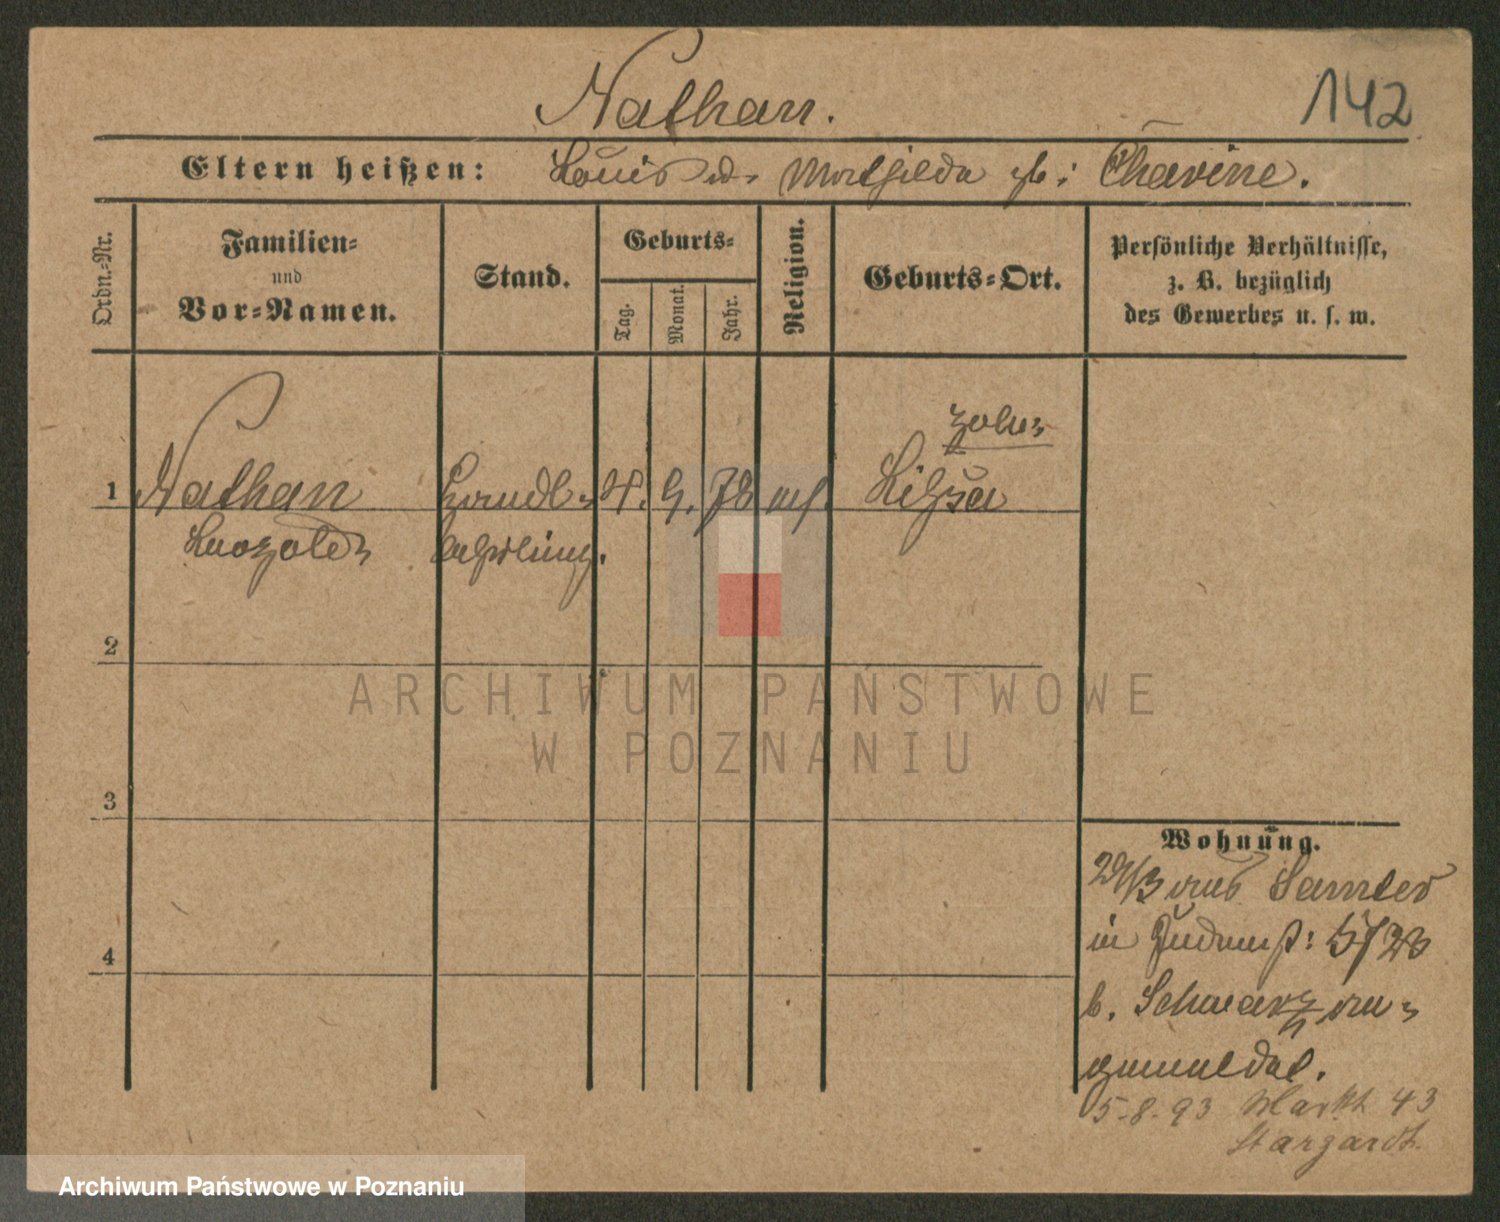 Nathan.
142
Eltern heißen: Louis u. Mathilda gb: Chavine.
Ordn.-Nr.
Familien-
und
Vor-Namen.
Stand.
Geburts-
Tag.
Monat.
Jahr.
Religion.
Geburts-Ort.
Persönliche Verhältnisse,
z. B. bezüglich
des Gewerbes u. s. w.
1
Nathan
Leopold
Handl-
lehrling.
4. 9. 78
Lissa
2
ARCHIWUM PAŃSTWOWE
W POZNANIU
3
Wohnung.
29/3 aus Samter
in Judenst: 5/23
b. Schwarz an-
gemeldet.
4
5-8-93 Markt 43
Stargardt.
Archiwum Państwowe w Poznaniu